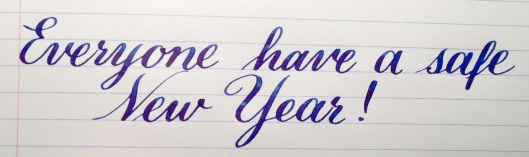 Everyone have a safe
New Year!